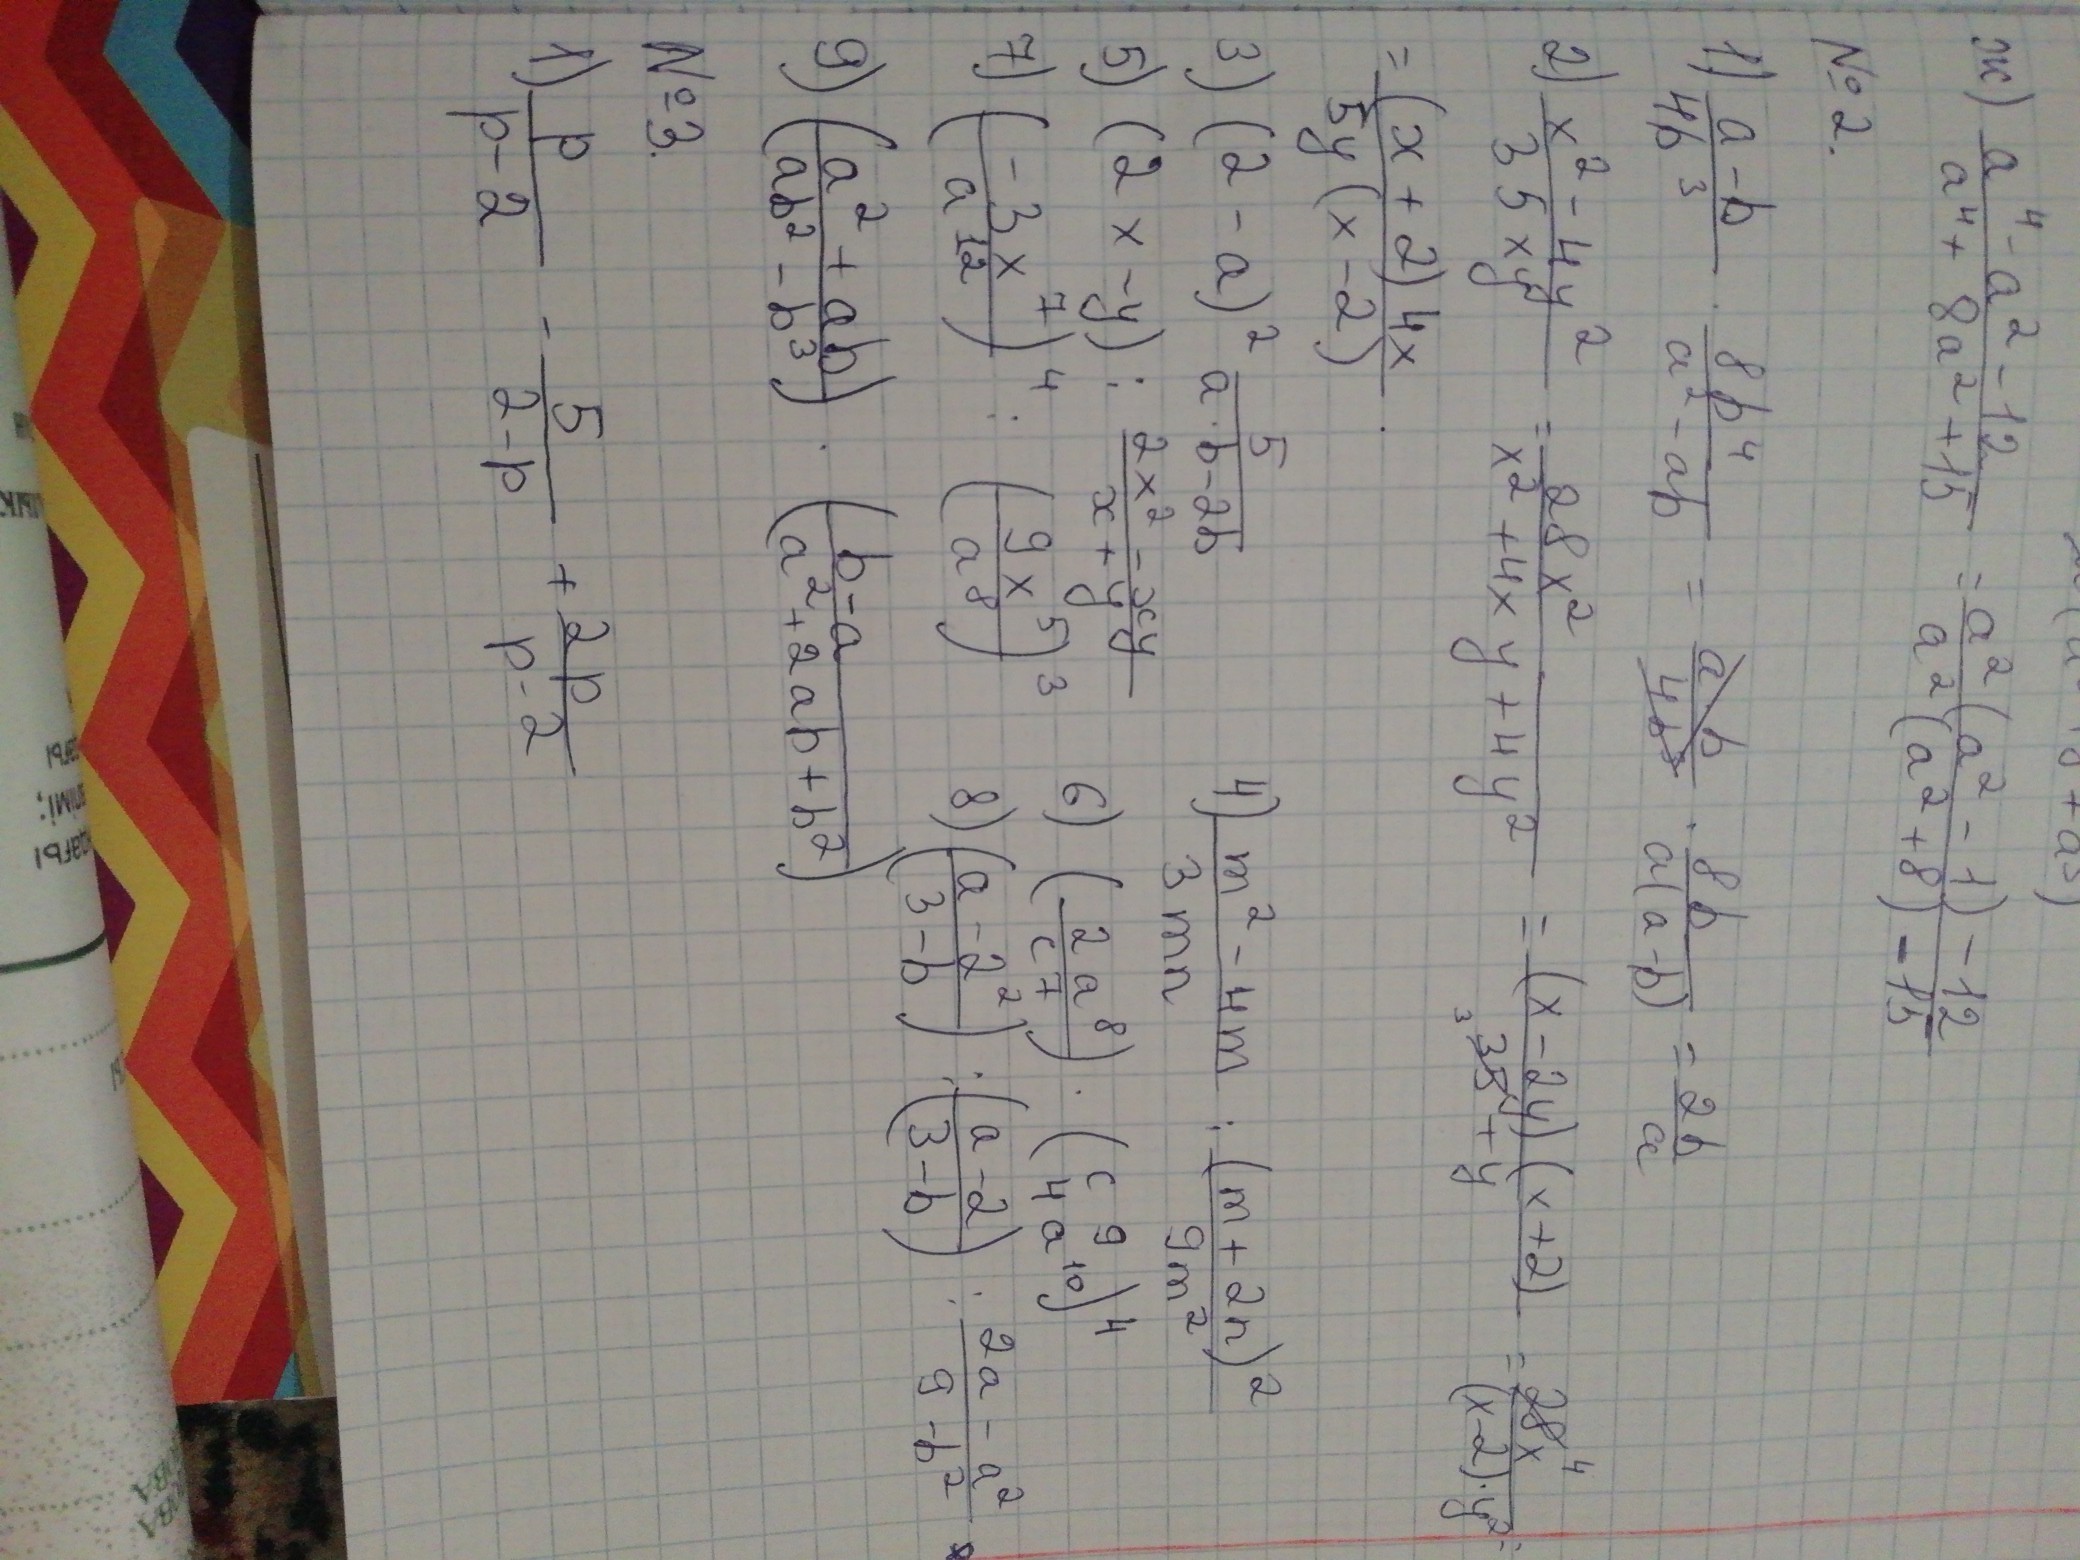 ж) (a⁴ - a² - 12)/(a⁴ + 8a² + 15) = (a²(a² - 1) - 12)/(a²(a² + 8) - 15)
№2.
1) (a - b)/(4b³) · (8b⁴)/(a² - ab) = (a - b)/(4b³) · (8b)/(a(a - b)) = (2b)/a
2) (x² - 4y²)/(35xy) = (28x²)/(x² + 4xy + 4y²) = ((x - 2y)(x + 2))/(35 + y) = (28x)/((x - 2)·y²) =
= ((x + 2)4x)/(5y(x - 2)) .
3) (2 - a)² 5/(a·b - 2b) 4) (m² - 4m)/(3mn) : (m + 2n)²/(9m²)
5) (2x - y) : (2x² - xy)/(x + y) 6) ((2a⁸)/(c⁷)) · (c⁹/(4a¹⁰))⁴
7) ((-3x⁷)/(a¹²))⁴ : ((9x⁵)/(a⁸))³ 8) ((a - 2²)/(3 - b)) : ((a - 2)/(3 - b)) : (2a - a²)/(9 - b²)
9) ((a² + ab)/(ab² - b³)) · ((b - a)/(a² + 2ab + b²))
№3.
1) p/(p - 2) - 5/(2 - p) + 2p/(p - 2)